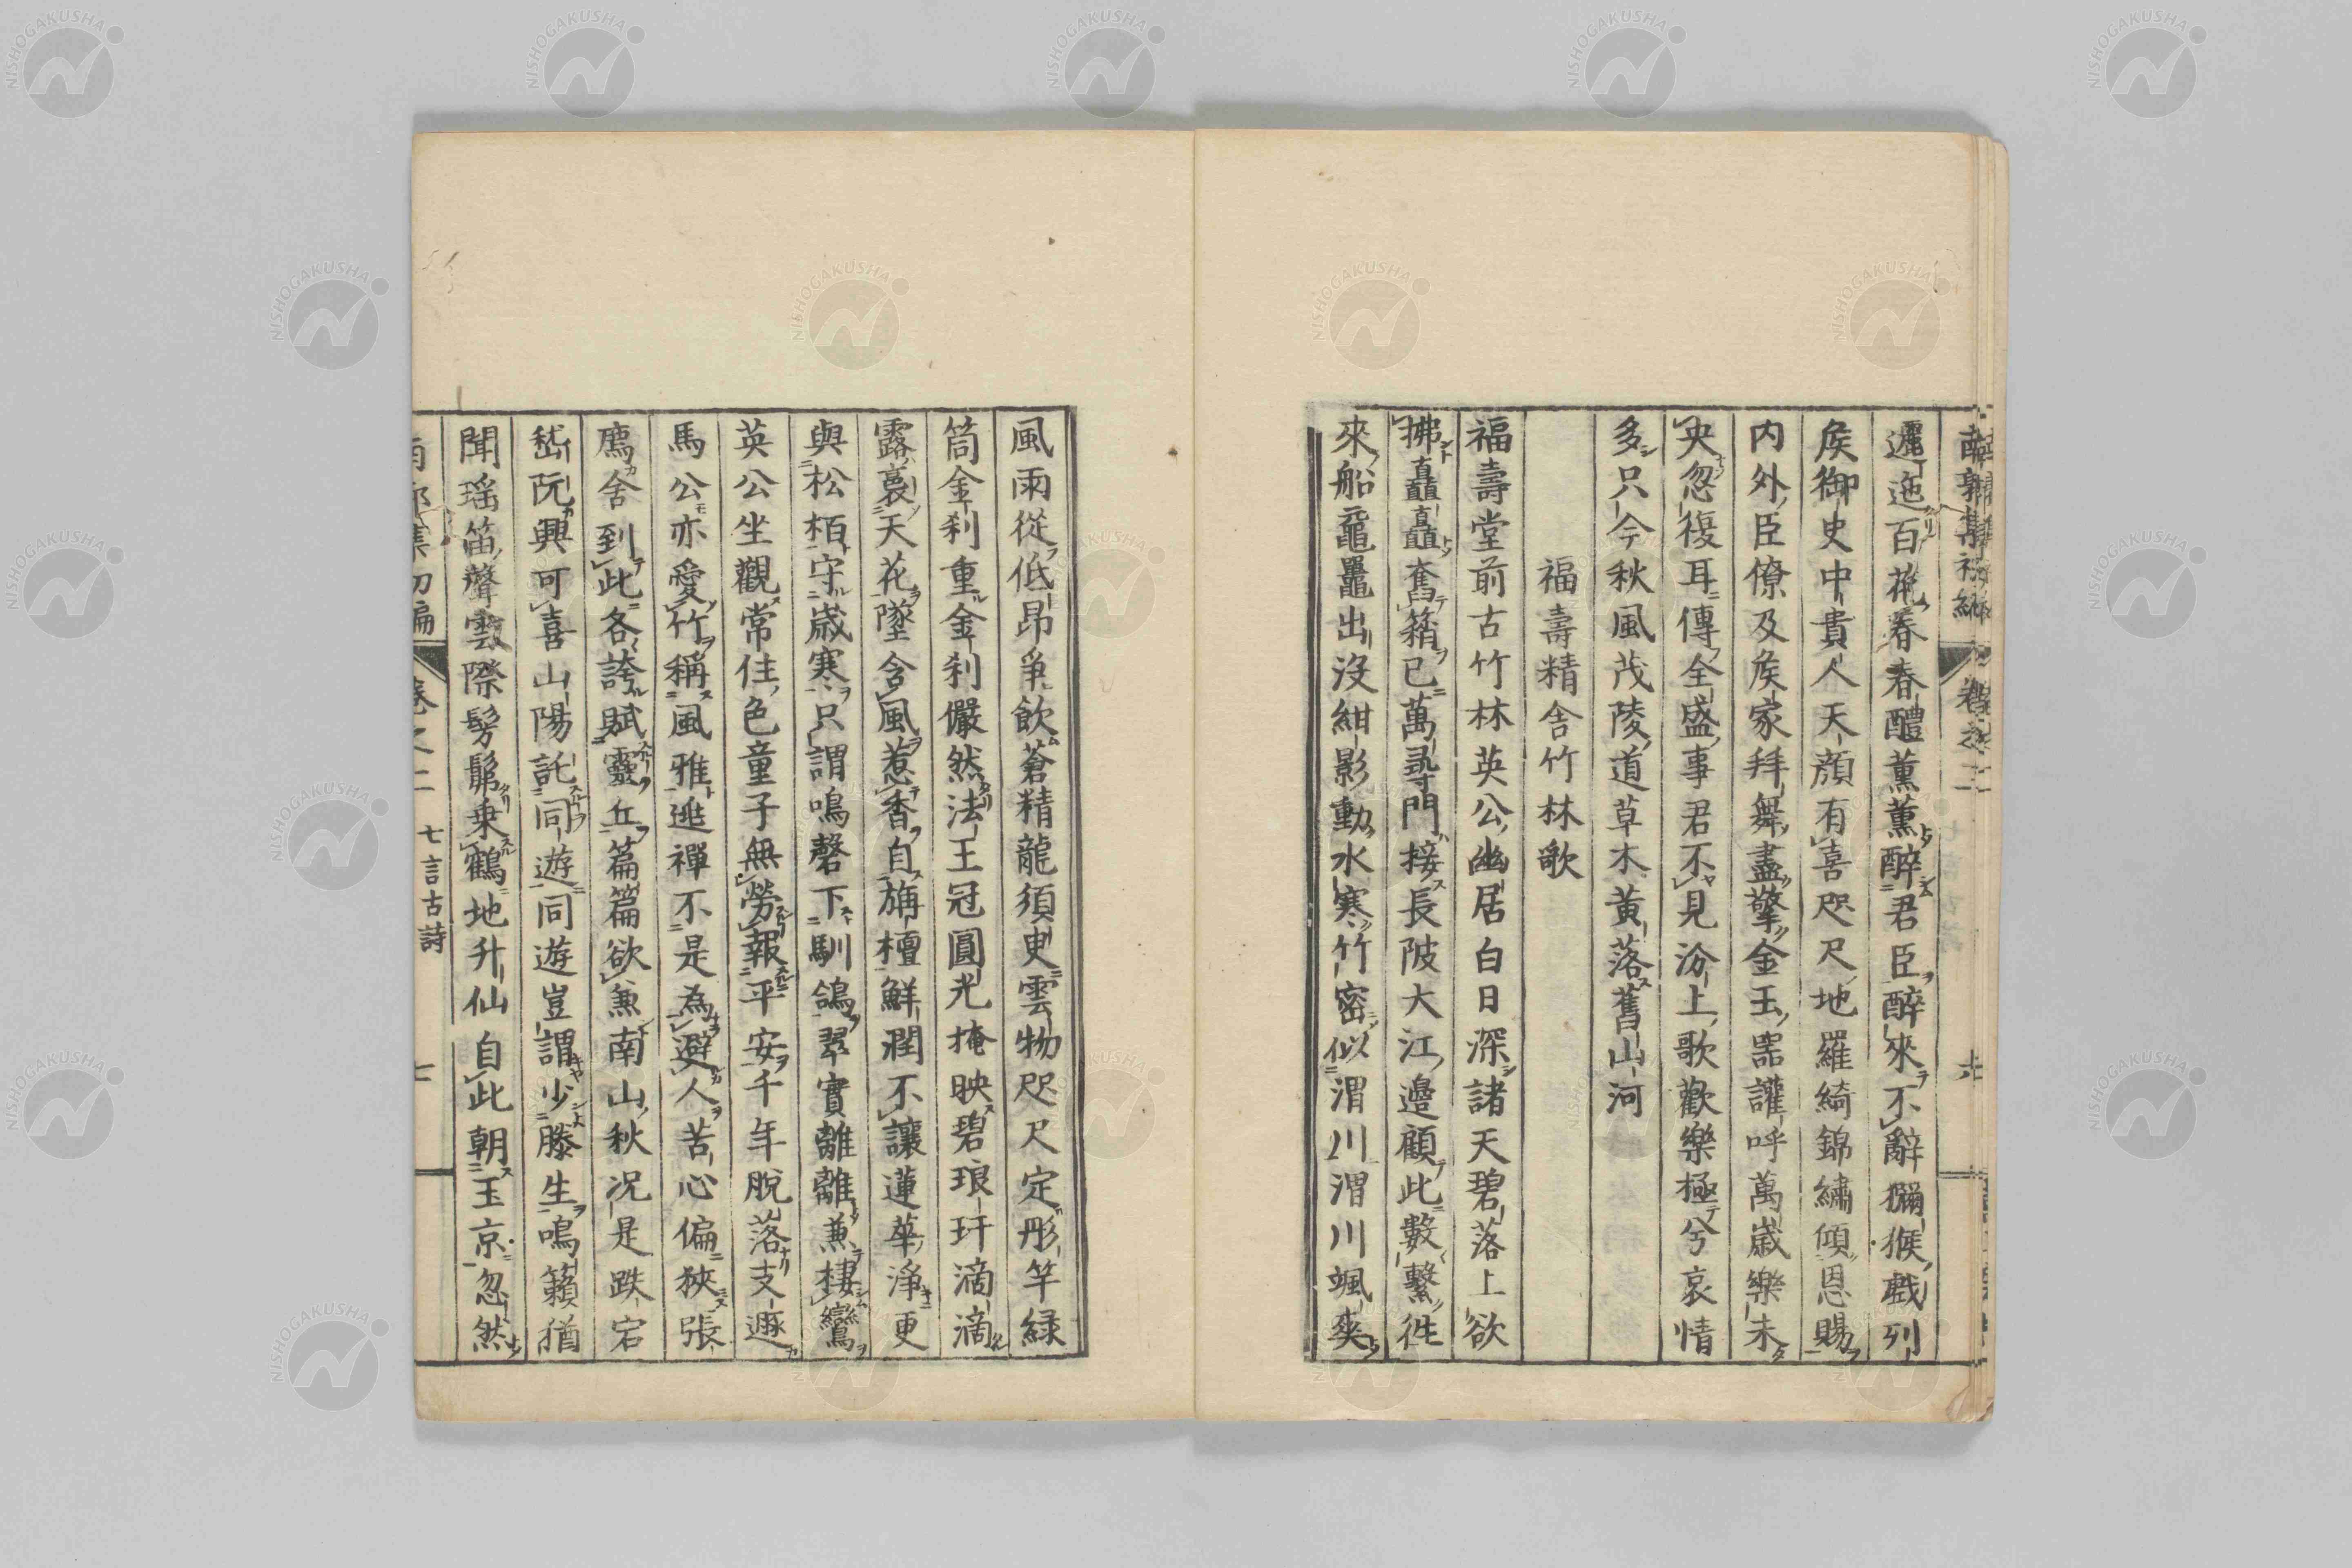 南郭集初編 卷之二
邐迤百花春春醴薰薰醉君臣醉來不辭獼猴戲列
矦御史中貴人天顔有喜咫尺地羅綺錦繡傾恩賜
内外臣僚及矦家拜舞盡擎金玉器讙呼萬歲樂未
央忽復耳傳全盛事君不見汾上歌歡樂極兮哀情
多只今秋風茂陵道草木黃落舊山河
福壽精舍竹林歌
福壽堂前古竹林英公幽居白日深諸天碧落上欲
拂矗矗奮籜已萬尋門接長陂大江邊顧此數繫徃
來船黿鼉出沒紺影動水寒竹密似渭川渭川颯爽
風雨從低昂爭飲蒼精龍須臾雲物咫尺定彤竿緑
筒金刹重金刹儼然法王冠圓光掩映碧琅玕滴滴
露裛天花墜含風惹香自旃檀鮮潤不讓蓮華淨更
與松栢守歲寒只謂鳴磬下馴鴿翠實離離兼棲鸞
英公坐觀常住色童子無勞報平安千年脫落支遁
馬公亦愛竹稱風雅逃禪不是為避人苦心偏狹張
廌舍到此各誇賦靈丘篇篇欲兼南山秋況是跌宕
嵆阮興可喜山陽託同遊同遊豈謂少滕生鳴籟猶
聞瑶笛聲雲際髣髴乗鶴地升仙自此朝玉京忽然
南郭集初編 卷之二 七言古詩 七
NISHOGAKUSHA